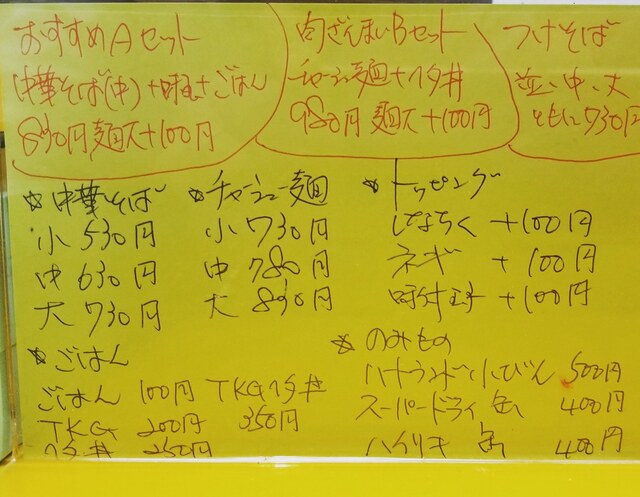 おすすめAセット
中華そば(中)+味玉+ごはん
830円 麺大+100円
肉ざんまいBセット
チャーシュー麺+ブタ丼
980円 麺大+100円
つけそば
並・中・大
ともに730円
☆中華そば
小 530円
中 630円
大 730円
☆チャーシュー麺
小 730円
中 780円
大 890円
☆トッピング
しなちく +100円
ネギ +100円
味付玉子 +100円
☆ごはん
ごはん 100円
TKG 200円
ブタ丼 250円
TKGブタ丼
350円
☆のみもの
ハートランド小びん 500円
スーパードライ缶 400円
ハイリキ缶 400円